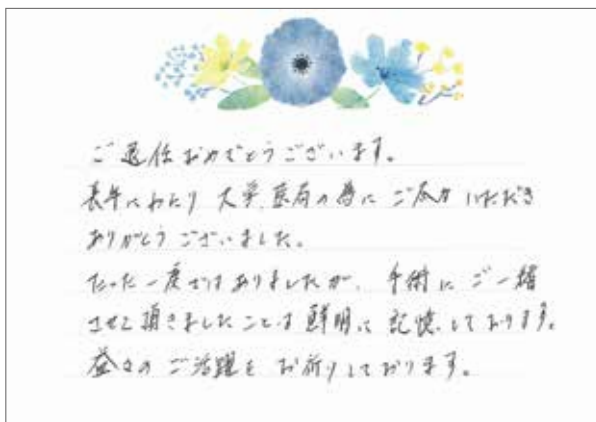 ご退任おめでとうございます。
長年にわたり 大学、医局の為に ご尽力いただき
ありがとうございました。
たった一度ではありましたが、手術にご一緒
させて頂きましたことは鮮明に記憶しております。
益々のご活躍をお祈りしております。